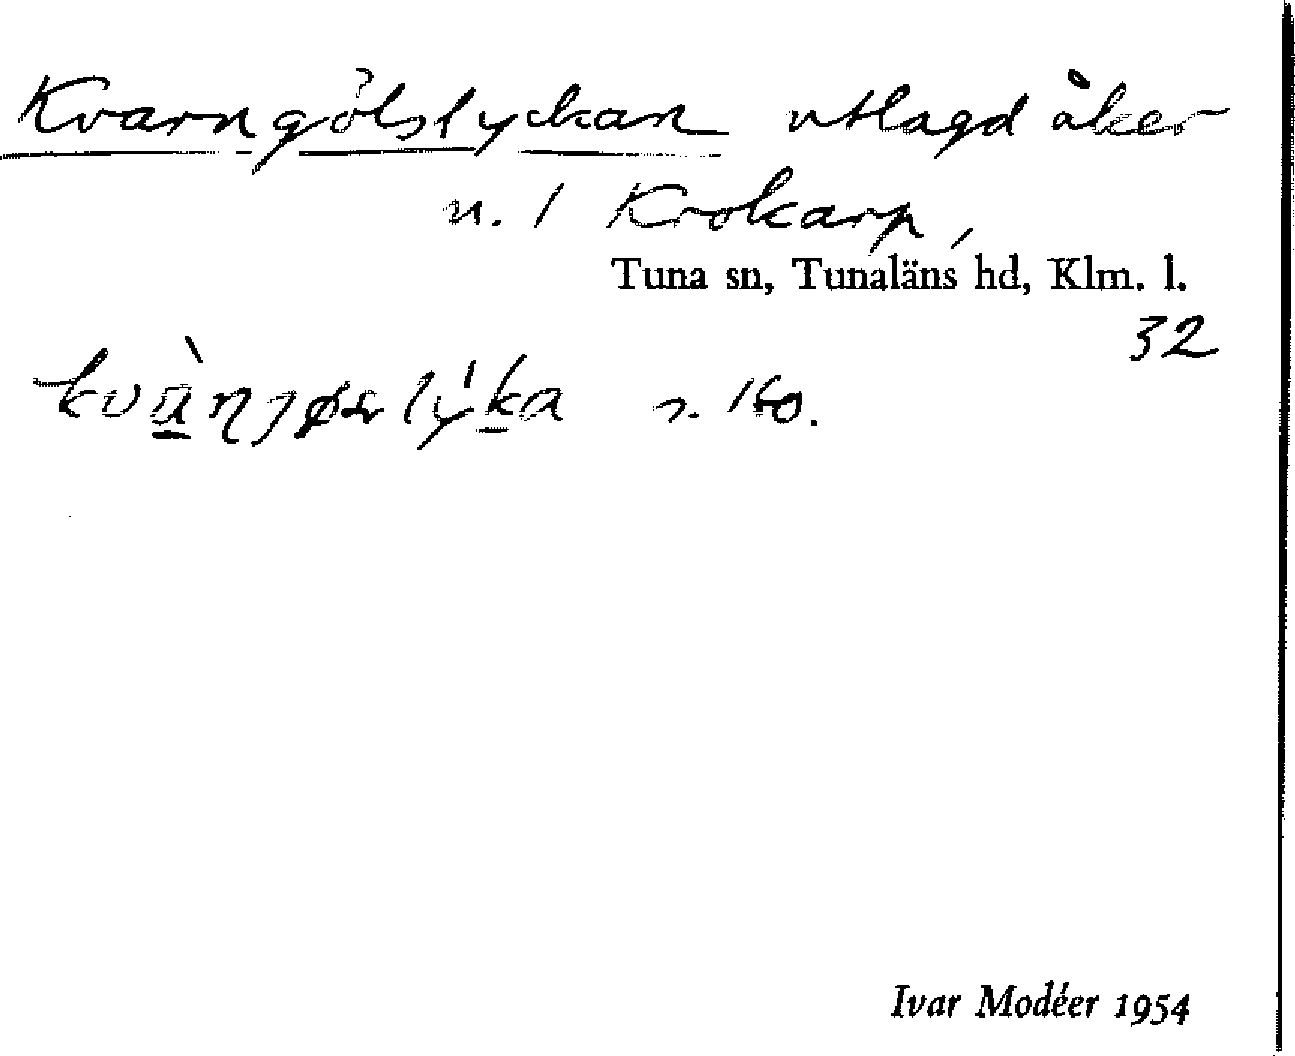 Kvarngölslyckan utlagd åker
n. 1 Krokarp,
Tuna sn, Tunaläns hd, Klm. l.
32
s. 160.
Ivar Modéer 1954